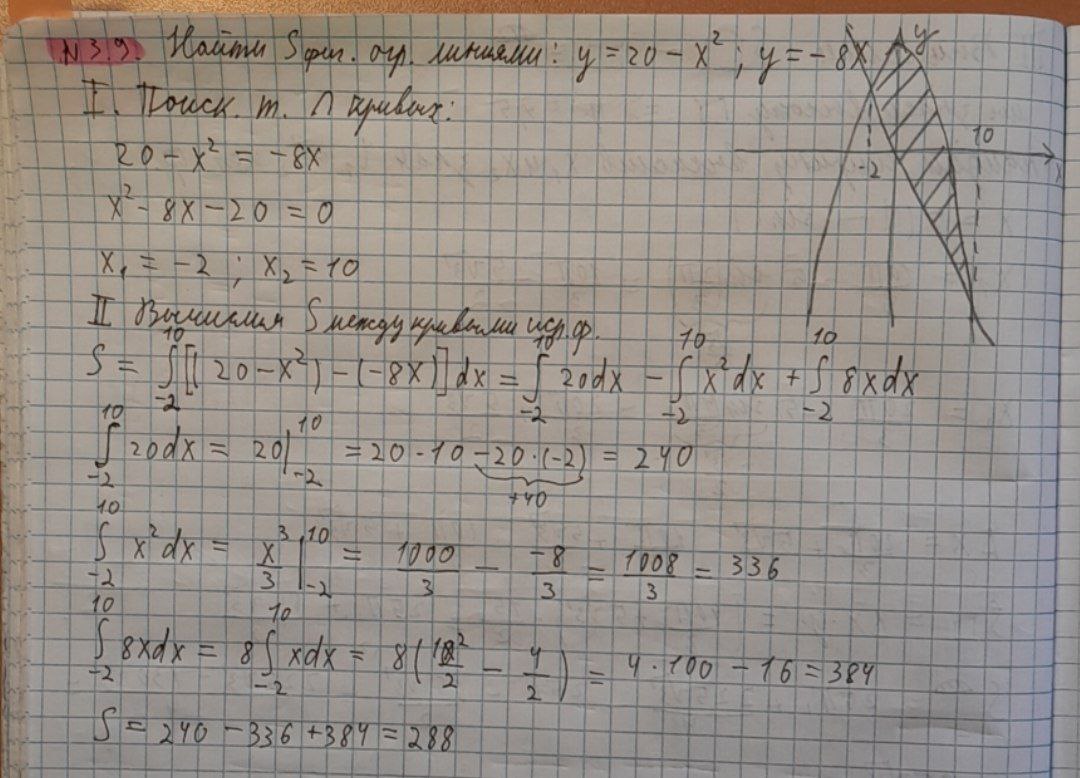 N 3.9. Найти S фиг. огр. линиями: y = 20 - x²; y = - 8x
I. Поиск. т. ∩ кривых:
20 - x² = -8x
x² - 8x - 20 = 0
x₁ = -2 ; x₂ = 10
II Вычислим S между кривыми исп. ф.
S = ∫₋₂¹⁰ [(20 - x²) - (-8x)] dx = ∫₋₂¹⁰ 20dx - ∫₋₂¹⁰ x²dx + ∫₋₂¹⁰ 8xdx
∫₋₂¹⁰ 20dx = 20|₋₂¹⁰ = 20 · 10 - 20 · (-2) = 240
+40
∫₋₂¹⁰ x²dx = x³/3 |₋₂¹⁰ = 1000/3 - -8/3 = 1008/3 = 336
∫₋₂¹⁰ 8xdx = 8∫₋₂¹⁰ xdx = 8(10²/2 - 4/2) = 4 · 100 - 16 = 384
S = 240 - 336 + 384 = 288
y
10
-2
x